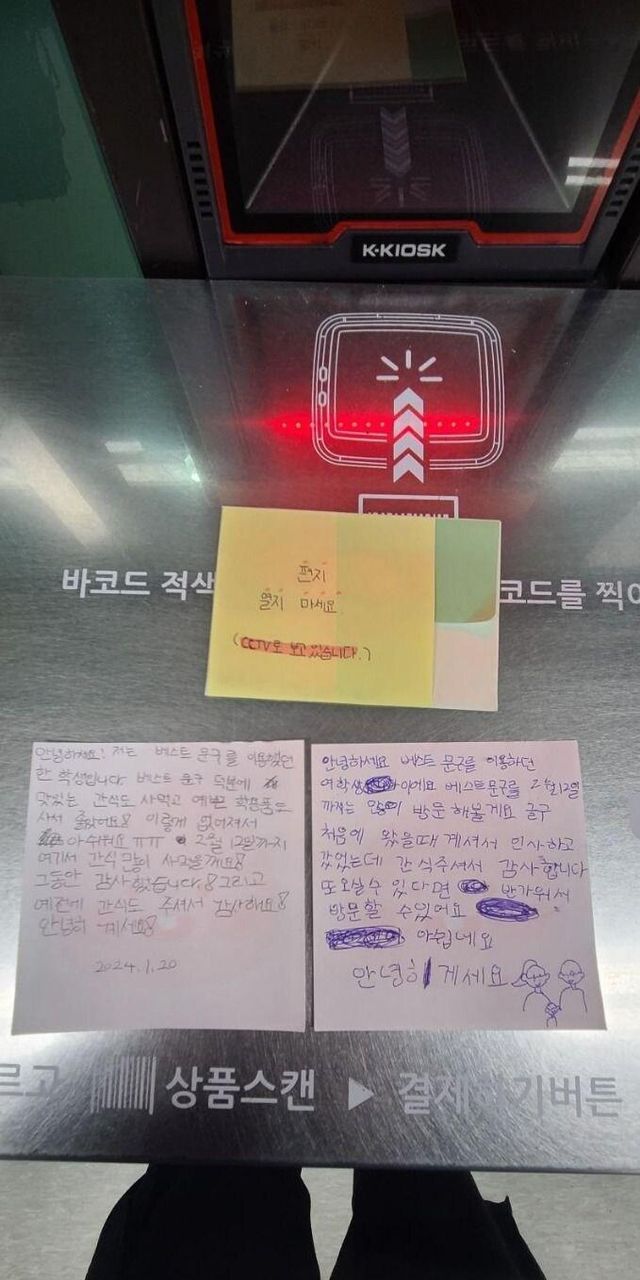 K-KIOSK
바코드 적색
코드를 찍어
편지
열지 마세요.
(CCTV로 보고 있습니다.)
안녕하세요! 저는 베스트 문구를 이용했던
한 학생입니다 베스트 문구 덕분에
맛있는 간식도 사먹고 예쁜 학용품도
사서 좋았어요! 이렇게 없어져서
아쉬워요 ㅠㅠ 2월 12일까지
여기서 간식 많이 사먹을게요!
그동안 감사했습니다! 그리고
예전에 간식도 주셔서 감사해요!
안녕히 계세요!
2024.1.20
안녕하세요 베스트 문구를 이용하던
여학생 이에요 베스트문구를 2월12일
까지는 많이 방문 해볼게요 굳구
처음에 왔을때 계셔서 인사하고
갔었는데 간식주셔서 감사합니다
또오실수 있다면 반가워서
방문할 수있어요
아쉽네요
안녕히 계세요
르고 상품스캔 ▶ 결제하기버튼